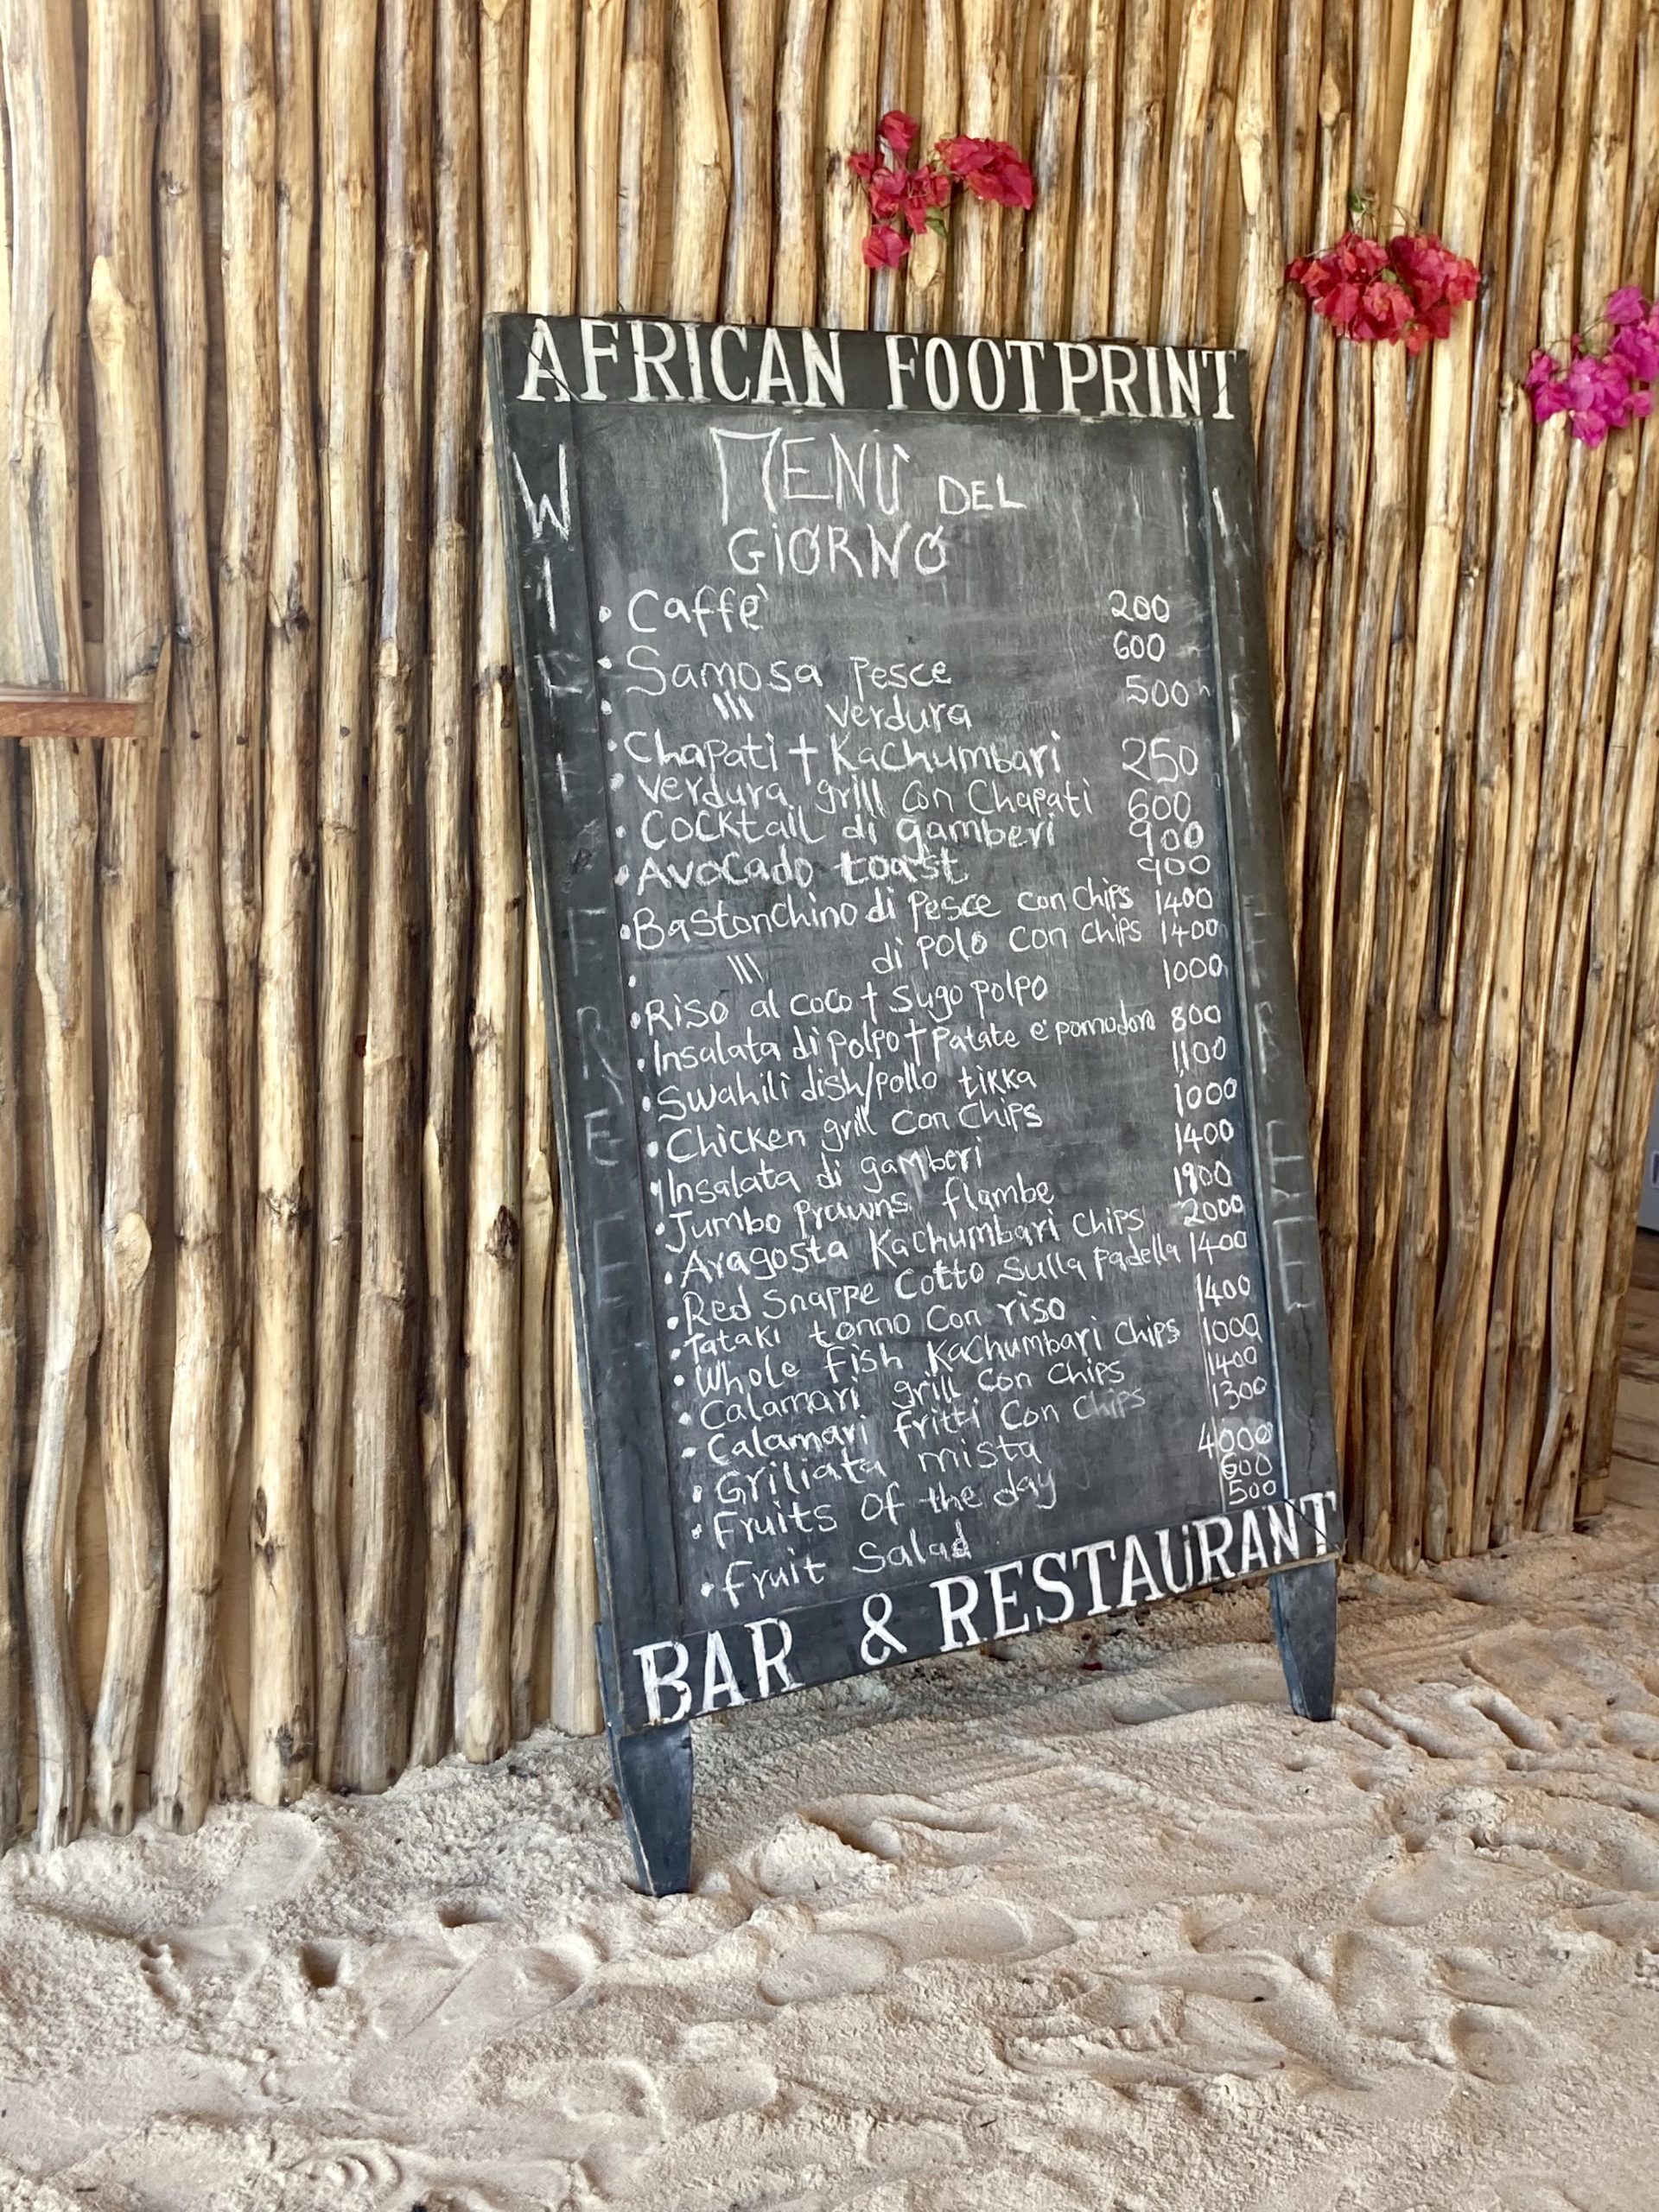 AFRICAN FOOTPRINT
MENÙ DEL
GIORNO
• Caffè 200
• Samosa pesce 600
• \\\ verdura 500
• Chapati + Kachumbari 250
• verdura grill con Chapati 600
• Cocktail di gamberi 900
• Avocado toast 900
• Bastonchino di pesce con chips 1400
• \\\ di polo con chips 1400
• Riso al coco + sugo polpo 1000
• Insalata di polpo + patate e pomodoro 800
• Swahili dish/pollo tikka 1100
• Chicken grill con chips 1000
• Insalata di gamberi 1400
• Jumbo prawns flambe 1900
• Aragosta Kachumbari chips 2000
• Red Snappe cotto sulla padella 1400
• Tataki tonno con riso 1400
• Whole fish Kachumbari chips 1000
• Calamari grill con chips 1400
• Calamari fritti con chips 1300
• Griliata mista 4000
• Fruits of the day 600
• fruit Salad 500
BAR & RESTAURANT
WIFI
FREE